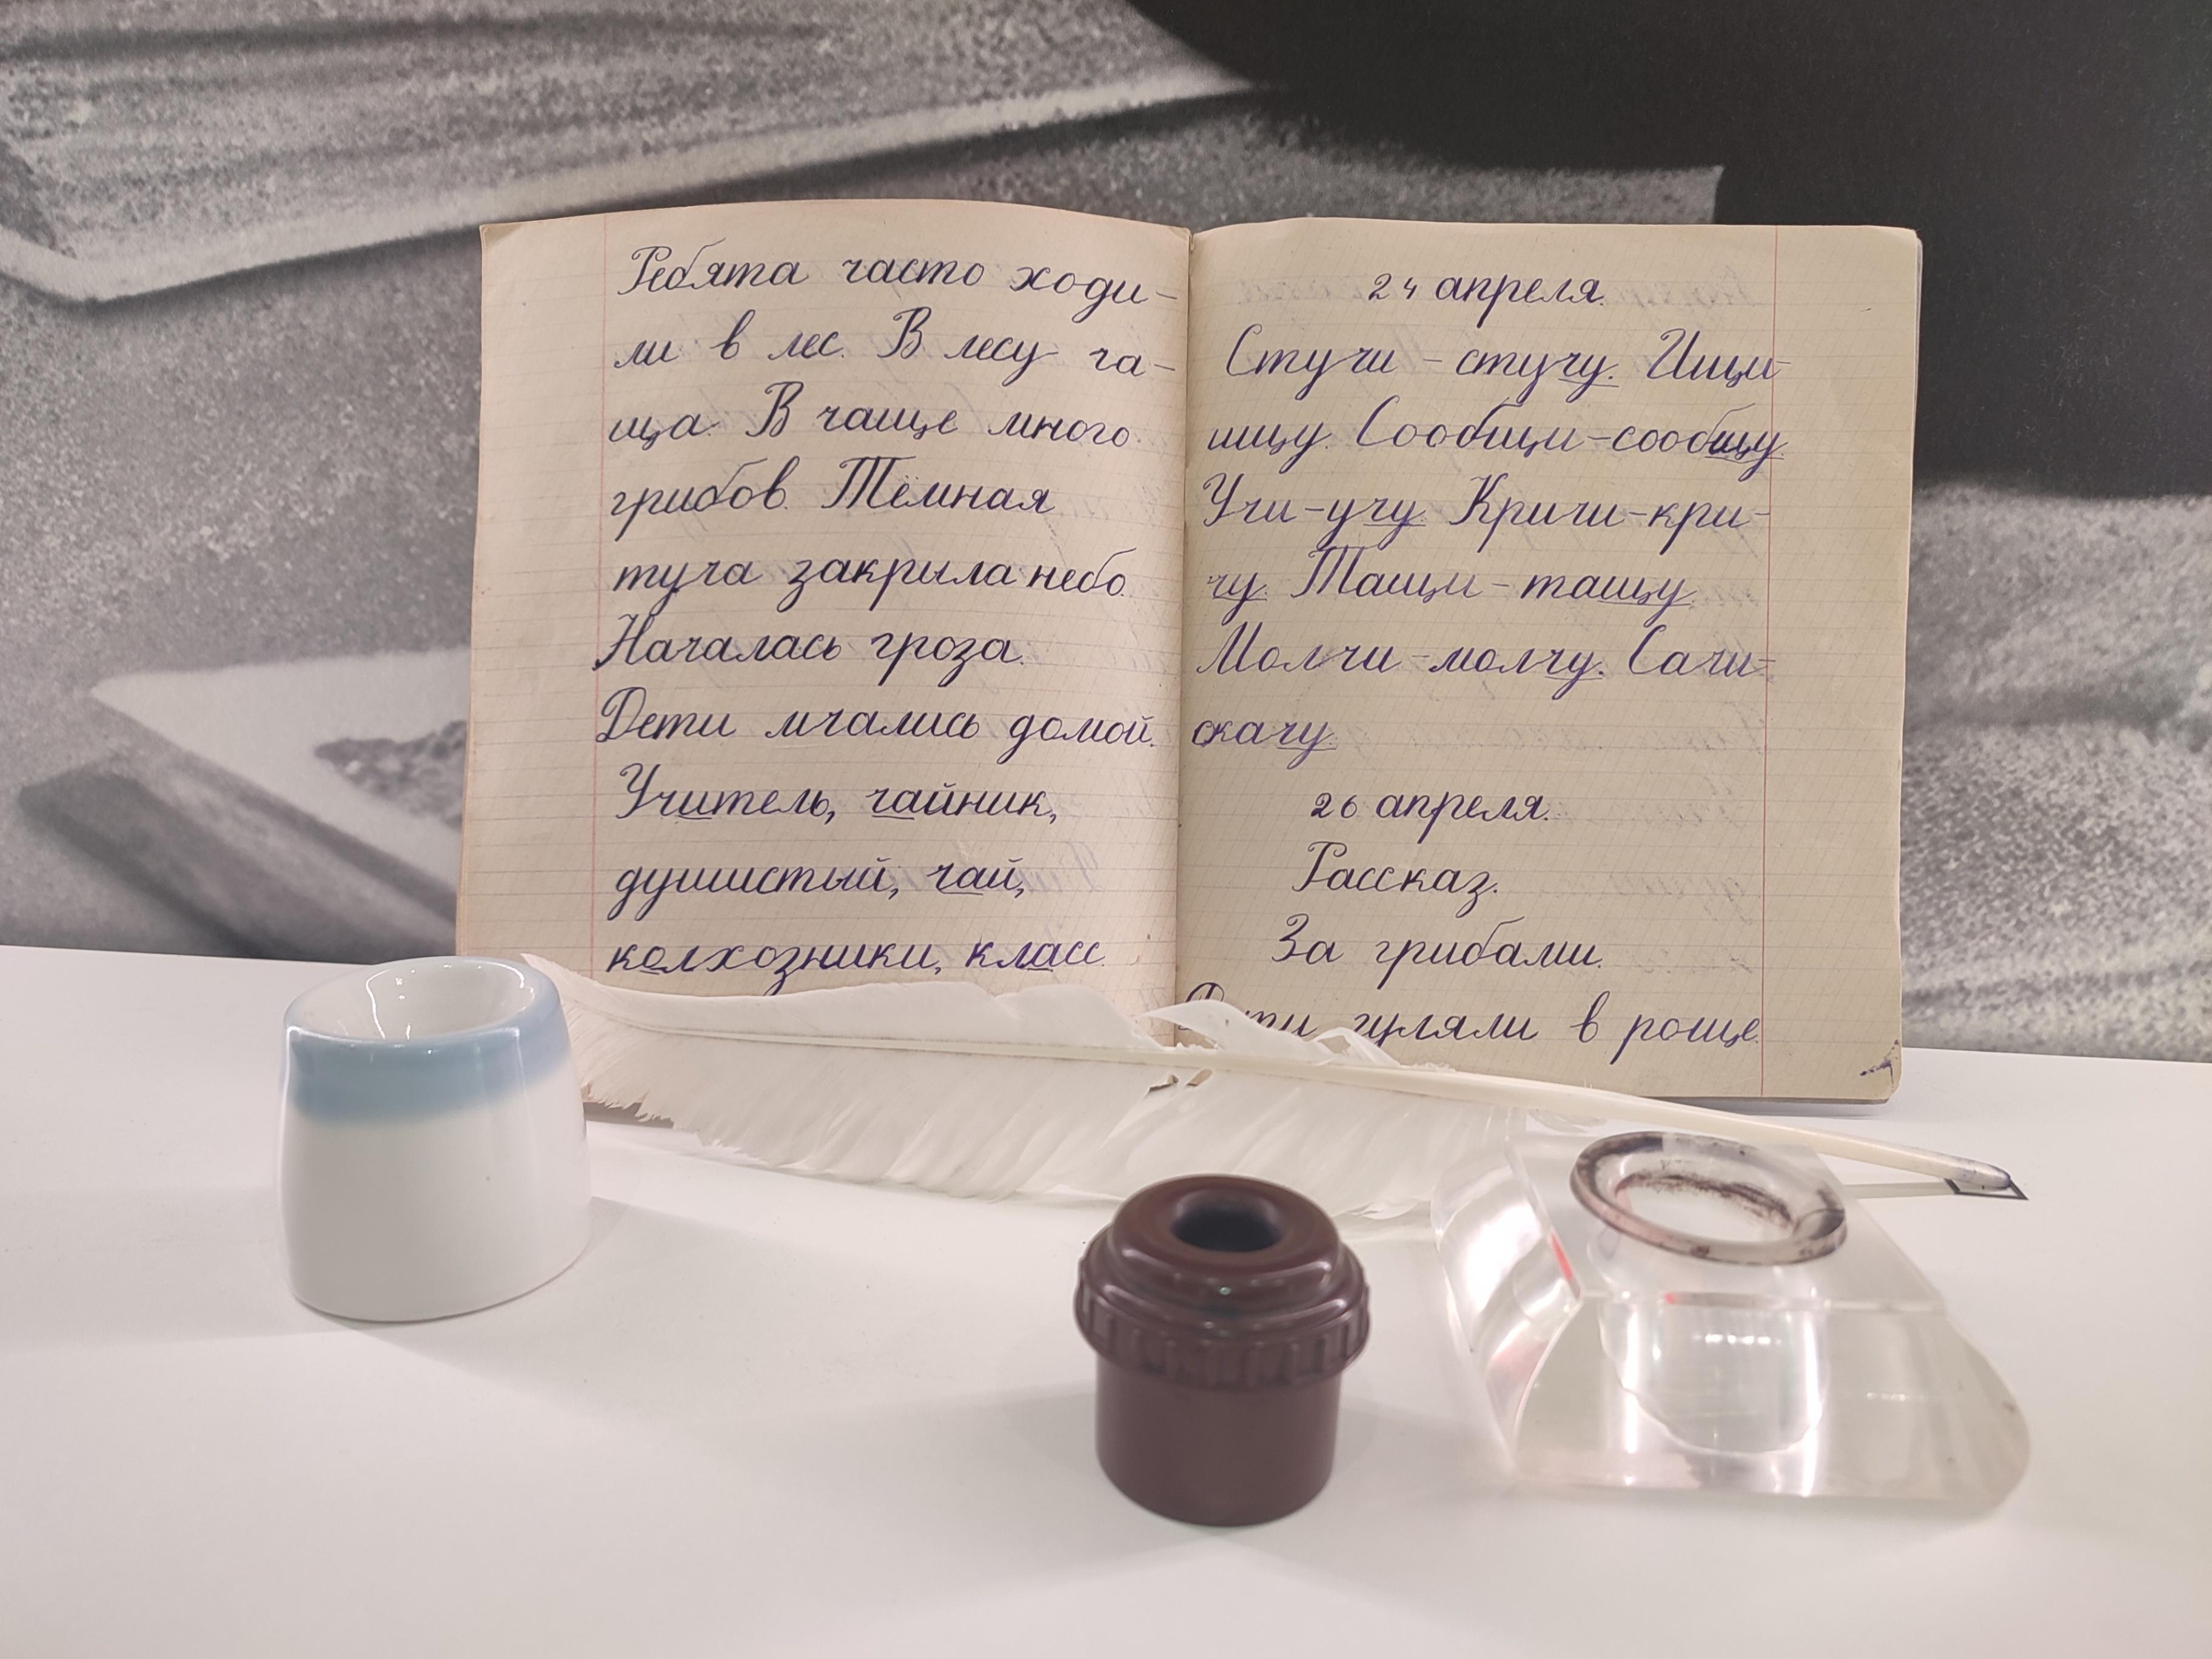 Ребята часто ходи-
ли в лес. В лесу ча-
ща. В чаще много
грибов. Тёмная
туча закрыла небо.
Началась гроза.
Дети мчались домой.
Учитель, чайник,
душистый, чай,
колхозники, класс.
24 апреля.
Стучи - стучу. Ищи-
ищу. Сообщи-сообщу.
Учи-учу. Кричи-кри-
чу. Тащи-тащу.
Молчи-молчу. Сачи-
скачу.
26 апреля.
Рассказ.
За грибами.
гуляли в роще.